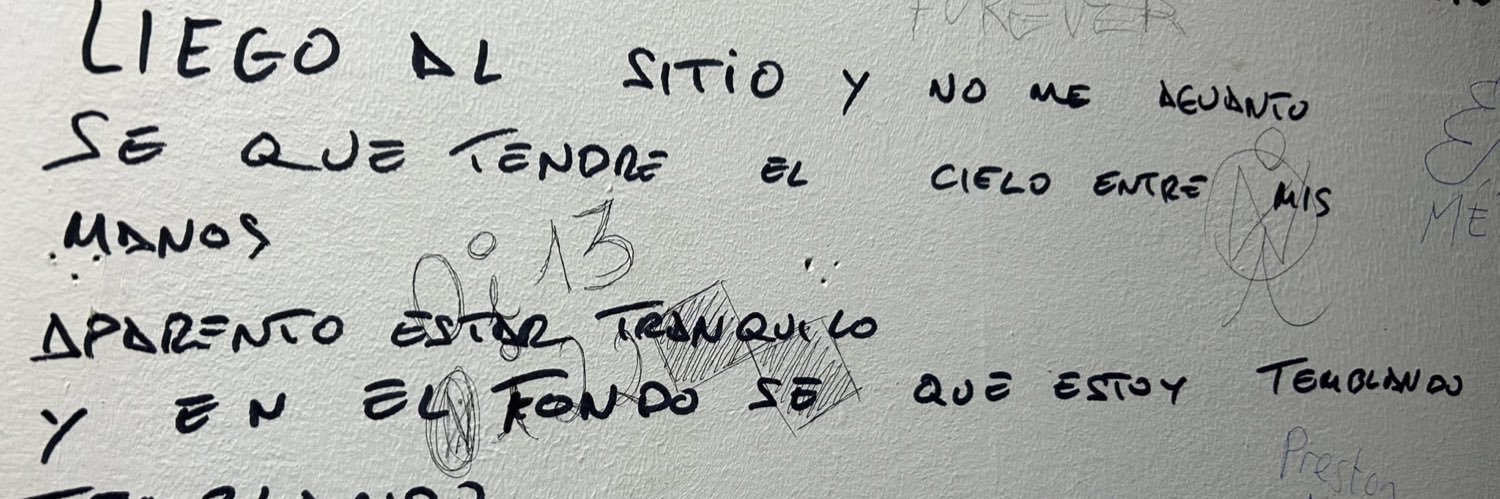 FOREVER
LIEGO AL SITIO Y NO ME AGUANTO
SE QUE TENDRE EL CIELO ENTRE MIS
MANOS
13
APARENTO ESTAR TRANQUILO
Y EN EL FONDO SE QUE ESTOY TEMBLANDO
Preston